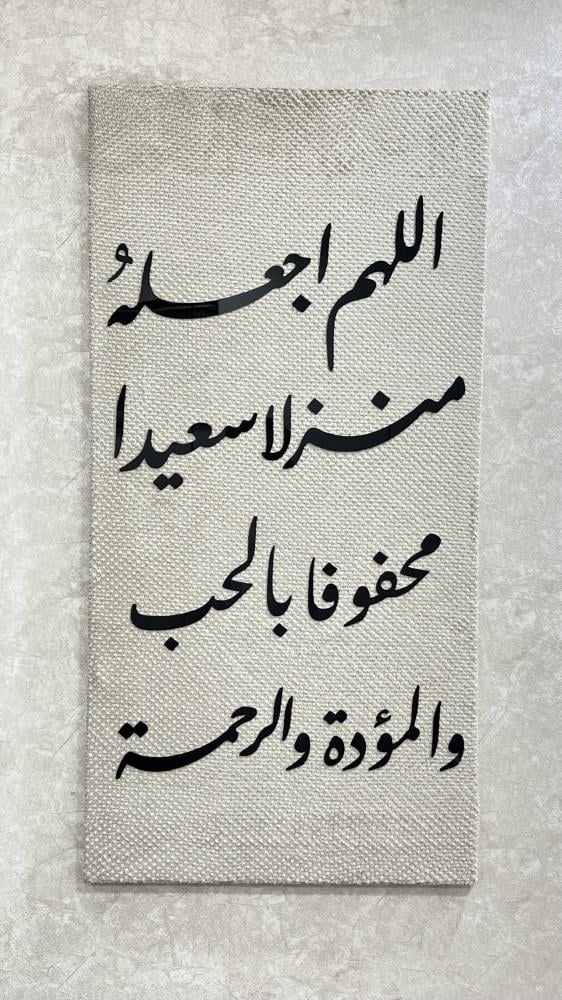 اللهم اجعلهُ
منزلا سعيدا
محفوفا بالحب
والمؤدة والرحمة